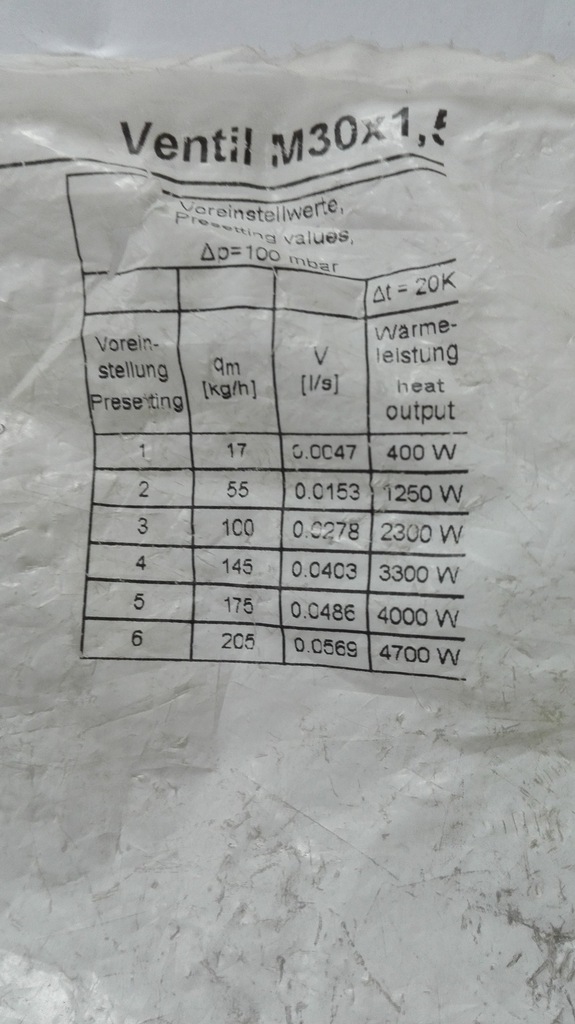 Ventil M30x1,5
Voreinstellwerte,
Presetting values,
Δp=100 mbar
Δt = 20K
Vorein-
stellung
Presetting
qm
[kg/h]
V
[l/s]
Wärme-
leistung
heat
output
1 17 0.0047 400 W
2 55 0.0153 1250 W
3 100 0.0278 2300 W
4 145 0.0403 3300 W
5 175 0.0486 4000 W
6 205 0.0569 4700 W